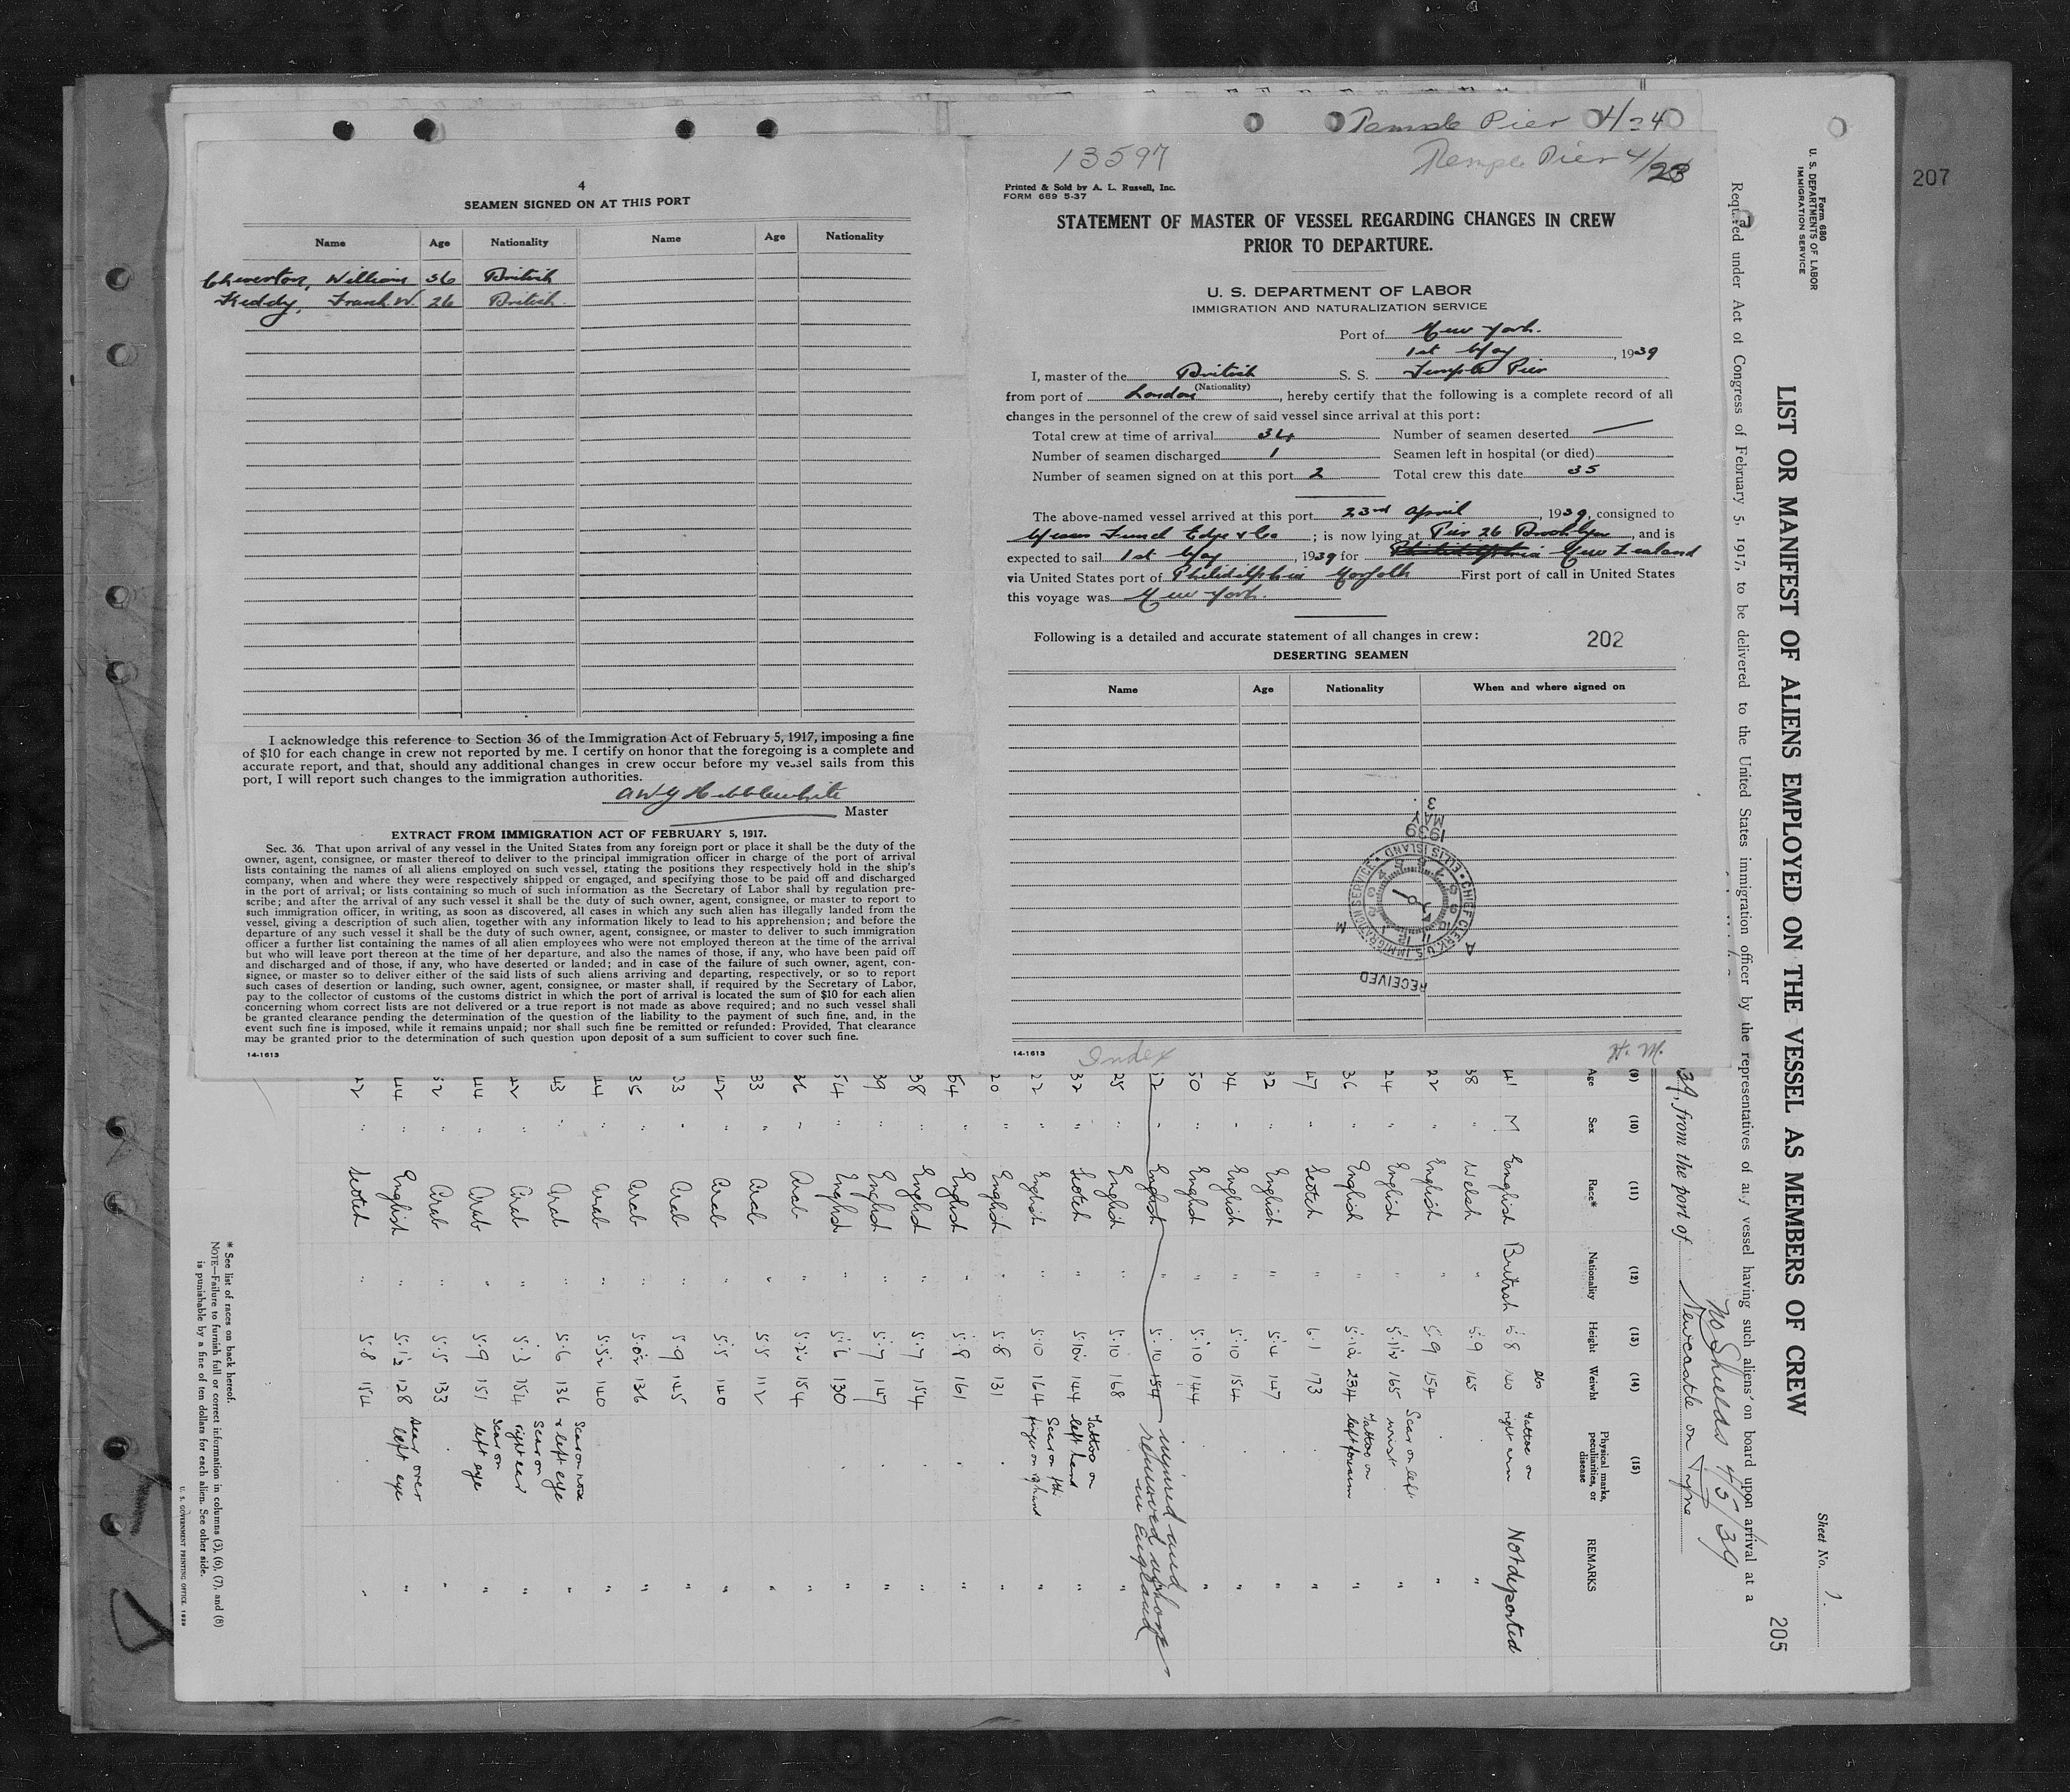 Temple Pier 4/24
13597
Temple Pier 4/23
207
4
SEAMEN SIGNED ON AT THIS PORT
Name Age Nationality Name Age Nationality
Cheverton, William 36 British
Keddy, Frank W. 26 British
I acknowledge this reference to Section 36 of the Immigration Act of February 5, 1917, imposing a fine
of $10 for each change in crew not reported by me. I certify on honor that the foregoing is a complete and
accurate report, and that, should any additional changes in crew occur before my vessel sails from this
port, I will report such changes to the immigration authorities.
AWG Hebblewhite
Master
EXTRACT FROM IMMIGRATION ACT OF FEBRUARY 5, 1917.
Sec. 36. That upon arrival of any vessel in the United States from any foreign port or place it shall be the duty of the
owner, agent, consignee, or master thereof to deliver to the principal immigration officer in charge of the port of arrival
lists containing the names of all aliens employed on such vessel, stating the positions they respectively hold in the ship's
company, when and where they were respectively shipped or engaged, and specifying those to be paid off and discharged
in the port of arrival; or lists containing so much of such information as the Secretary of Labor shall by regulation pre-
scribe; and after the arrival of any such vessel it shall be the duty of such owner, agent, consignee, or master to report to
such immigration officer, in writing, as soon as discovered, all cases in which any such alien has illegally landed from the
vessel, giving a description of such alien, together with any information likely to lead to his apprehension; and before the
departure of any such vessel it shall be the duty of such owner, agent, consignee, or master to deliver to such immigration
officer a further list containing the names of all alien employees who were not employed thereon at the time of the arrival
but who will leave port thereon at the time of her departure, and also the names of those, if any, who have been paid off
and discharged and of those, if any, who have deserted or landed; and in case of the failure of such owner, agent, con-
signee, or master so to deliver either of the said lists of such aliens arriving and departing, respectively, or so to report
such cases of desertion or landing, such owner, agent, consignee, or master, shall, if required by the Secretary of Labor,
pay to the collector of customs of the customs district in which the port of arrival is located the sum of $10 for each alien
concerning whom correct lists are not delivered or a true report is not made as above required; and no such vessel shall
be granted clearance pending the determination of the question of the liability to the payment of such fine, and, in the
event such fine is imposed, while it remains unpaid; nor shall such fine be remitted or refunded: Provided, That clearance
may be granted prior to the determination of such question upon deposit of a sum sufficient to cover such fine.
14-1613
Printed & Sold by A. L. Russell, Inc.
FORM 669 5-37
STATEMENT OF MASTER OF VESSEL REGARDING CHANGES IN CREW
PRIOR TO DEPARTURE.
U. S. DEPARTMENT OF LABOR
IMMIGRATION AND NATURALIZATION SERVICE
Port of New York.
1st May, 1939
I, master of the British S. S. Temple Pier
(Nationality)
from port of London, hereby certify that the following is a complete record of all
changes in the personnel of the crew of said vessel since arrival at this port:
Total crew at time of arrival 34 Number of seamen deserted —
Number of seamen discharged 1 Seamen left in hospital (or died)
Number of seamen signed on at this port 2 Total crew this date 35
The above-named vessel arrived at this port 23rd April, 1939, consigned to
Messrs Funch Edye & Co; is now lying at Pier 26 Brooklyn, and is
expected to sail 1st May, 1939 for Philidelphia New Zealand
via United States port of Philidelphia Norfolk First port of call in United States
this voyage was New York.
Following is a detailed and accurate statement of all changes in crew: 202
DESERTING SEAMEN
Name Age Nationality When and where signed on
RECEIVED
CHIEF CLERK U. S. IMMIGRATION SERVICE
ELLIS ISLAND
1939
MAY
3
A M
14-1613
Index
H. M.
Form 680
U. S. DEPARTMENT OF LABOR
IMMIGRATION SERVICE
Sheet No. 1.
205
LIST OR MANIFEST OF ALIENS EMPLOYED ON THE VESSEL AS MEMBERS OF CREW
Required under Act of Congress of February 5, 1917, to be delivered to the United States immigration officer by the representatives of any vessel having such aliens on board upon arrival at a
No Shields 4/5/39
39, from the port of Newcastle on Tyne
(9) (10) (11) (12) (13) (14) (15)
Age Sex Race* Nationality Height Weight Physical marks, peculiarities, or disease REMARKS
41 M English British 5·8 140 lbs Tattoo on right arm Not deported
38 " Welsh " 5·9 165 · "
22 " English " 5·9 154 · "
24 " English " 5·11½ 165 Scar on left wrist "
36 " English " 5·10½ 234 Tattoo on left forearm "
47 " Scotch " 6·1 173 "
32 " English " 5·4 147 "
24 " English " 5·10 154 "
50 " English " 5·10 144 "
" English " 5·10 154 injured and removed in England
25 " English " 5·10 168 "
32 " Scotch " 5·10½ 144 Tattoo on left hand "
22 " English " 5·10 164 Scar on 4th finger on r/hand "
20 " English " 5·8 131 "
64 " English " 5·8 161 "
38 " English " 5·7 154 "
39 " English " 5·7 147 "
54 " English " 5·6 130 "
36 " Arab " 5·2½ 154 "
33 " Arab " 5·5 112 "
42 " Arab " 5·5 140 "
33 " Arab " 5·9 145 "
35 " Arab " 5·0½ 136 "
44 " Arab " 5·5½ 140 "
43 " Arab " 5·6 136 Scar on nose & left eye "
22 " Arab " 5·3 154 Scar on right ear "
44 " Arab " 5·9 151 Scar on left eye "
32 " Arab " 5·5 133 "
44 " English " 5·1½ 128 Scar over left eye "
22 " Scotch " 5·8 154 "
* See list of races on back hereof.
NOTE—Failure to furnish full or correct information in columns (3), (6), (7), and (8)
is punishable by a fine of ten dollars for each alien. See other side.
U. S. GOVERNMENT PRINTING OFFICE